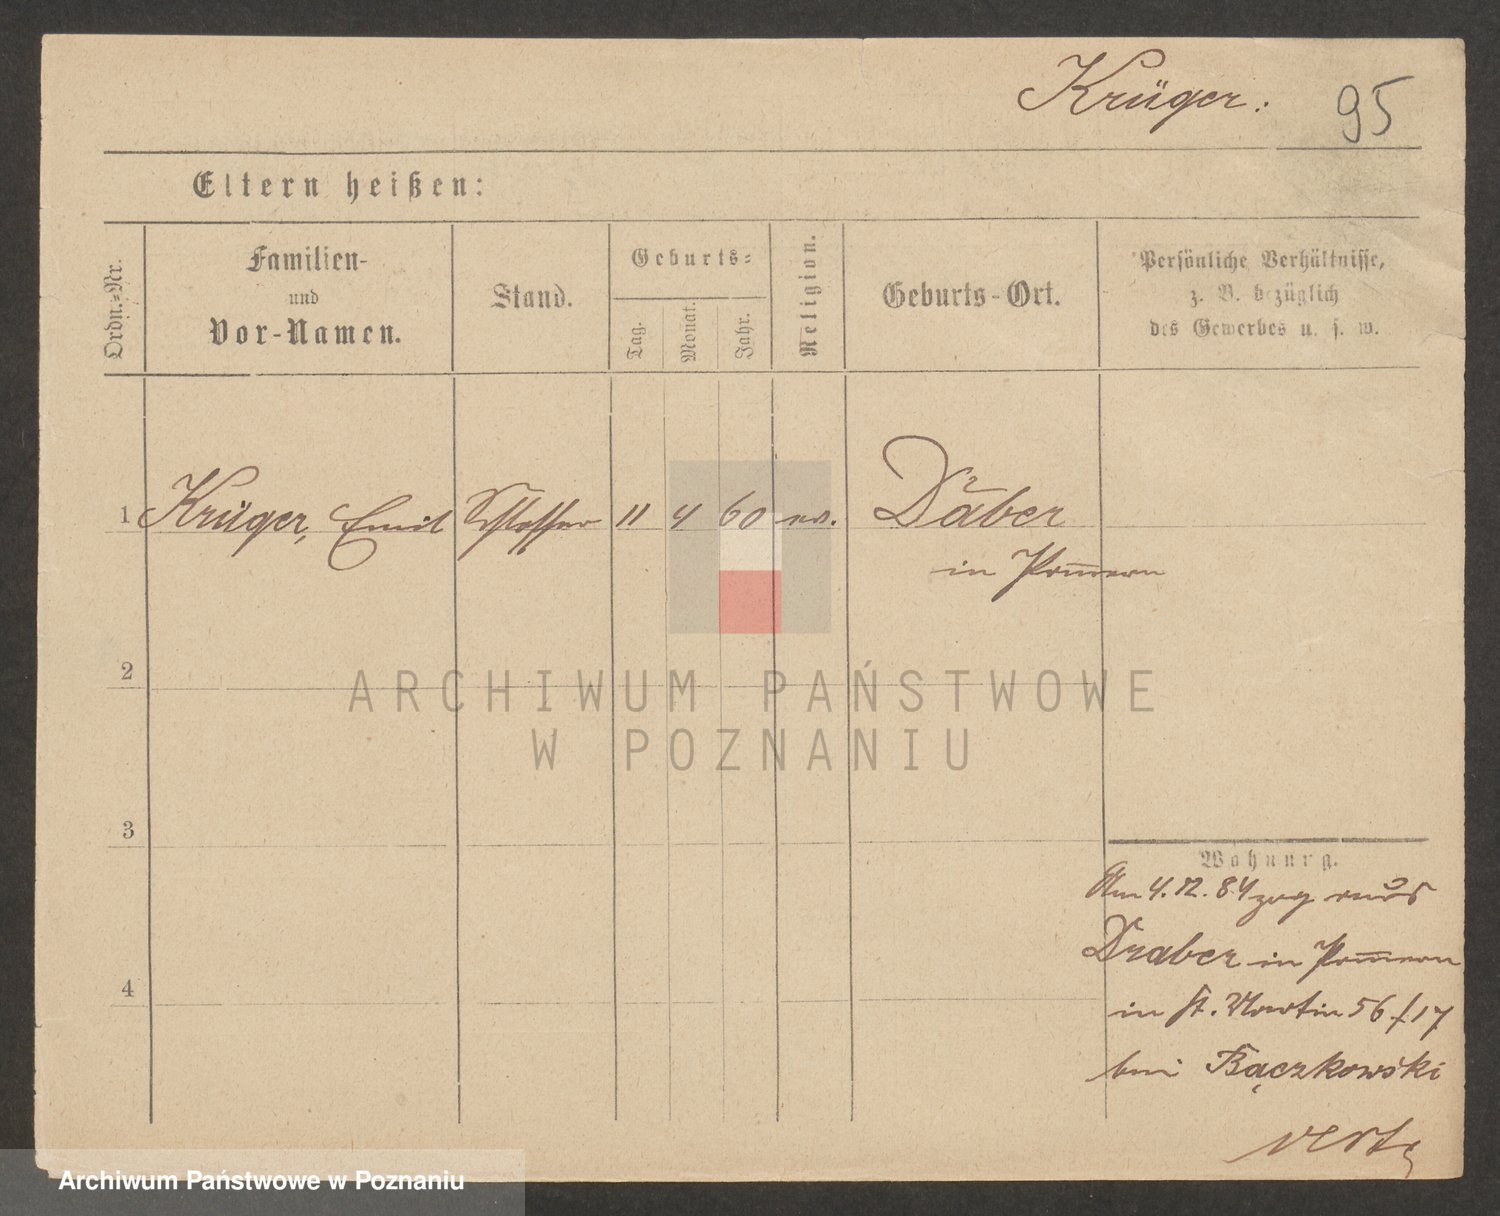 Krüger.
95
Eltern heißen:
Ordn.-Nr.
Familien-
und
Vor-Namen.
Stand.
Geburts-
Tag.
Monat.
Jahr.
Religion.
Geburts-Ort.
Persönliche Verhältnisse,
z. B. bezüglich
des Gewerbes u. s. w.
1 Krüger, Emil Schlosser 11 4 60 ev. Daber
in Pom̅ern
2
3
4
Wohnung.
Am 4.12.84 zog aus
Draber in Pom̅ern
in St. Martin 56./17
bei Bączkowski
verte
ARCHIWUM PAŃSTWOWE
W POZNANIU
Archiwum Państwowe w Poznaniu